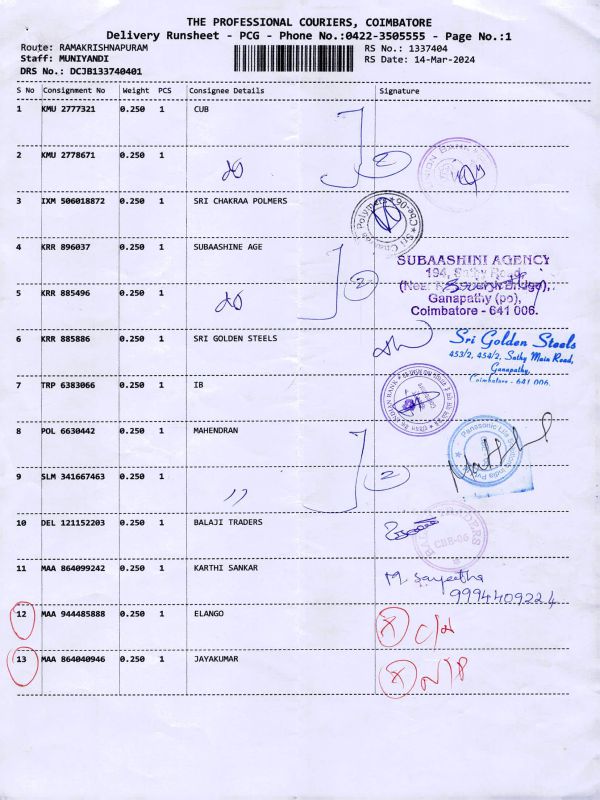 THE PROFESSIONAL COURIERS, COIMBATORE
Delivery Runsheet - PCG - Phone No.:0422-3505555 - Page No.:1
Route: RAMAKRISHNAPURAM RS No.: 1337404
Staff: MUNIYANDI RS Date: 14-Mar-2024
DRS No.: DCJB133740401
S No Consignment No Weight PCS Consignee Details Signature
1 KMU 2777321 0.250 1 CUB
2 KMU 2778671 0.250 1 do 2
3 IXM 506018872 0.250 1 SRI CHAKRAA POLMERS
4 KRR 896037 0.250 1 SUBAASHINE AGE
SUBAASHINI AGENCY
194, Sathy Road,
5 KRR 885496 0.250 1 do 2
Ganapathy (po),
Coimbatore - 641 006.
6 KRR 885886 0.250 1 SRI GOLDEN STEELS
Sri Golden Steels
453/2, 454/2, Sathy Main Road,
Ganapathy,
Coimbatore - 641 006.
7 TRP 6383066 0.250 1 IB
8 POL 6630442 0.250 1 MAHENDRAN
9 SLM 341667463 0.250 1 ,, 2
10 DEL 121152203 0.250 1 BALAJI TRADERS
CBE-06
11 MAA 864099242 0.250 1 KARTHI SANKAR
M. Sangeetha
9994409224
12 MAA 944485888 0.250 1 ELANGO X
13 MAA 864040946 0.250 1 JAYAKUMAR X